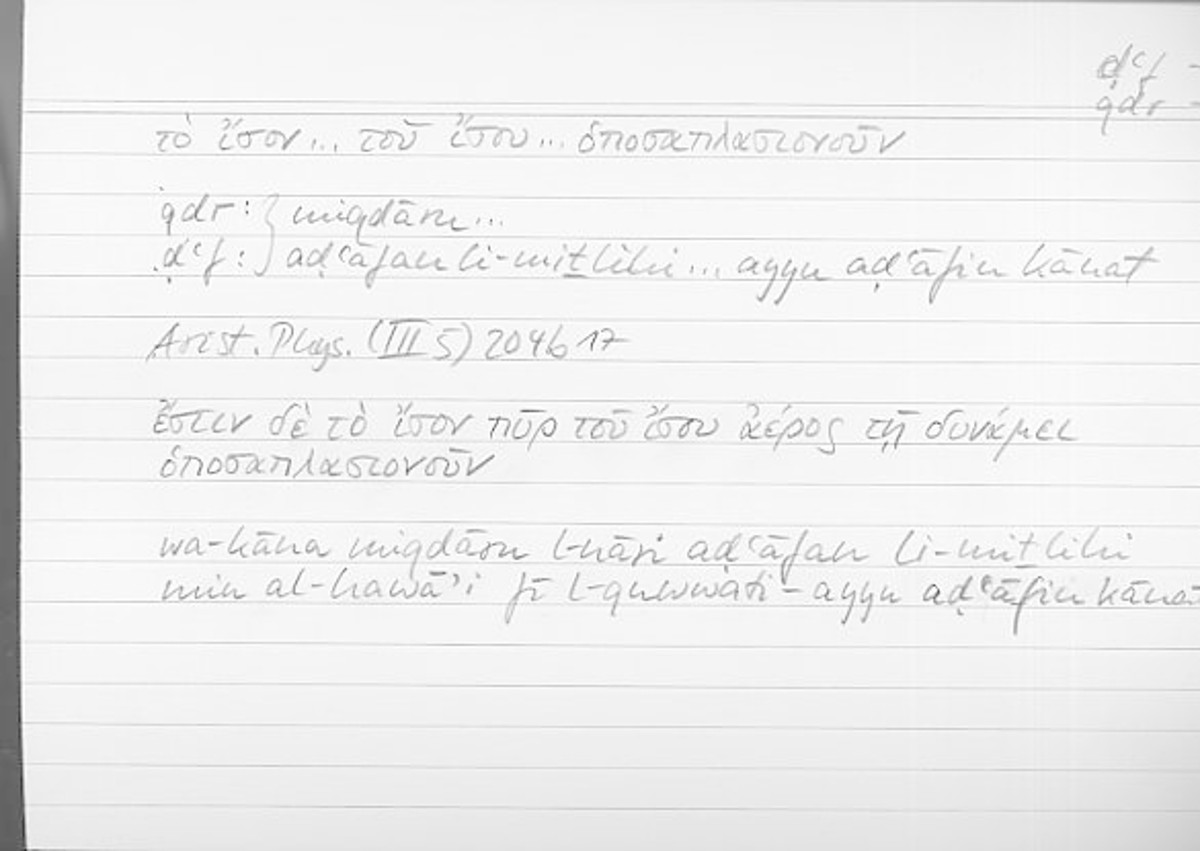 ḍʿf -
qdr -
τὸ ἴσον... τοῦ ἴσου... ὁποσαπλασιονοῦν
qdr : } miqdāru...
ḍʿf : } aḍʿāfan li-miṯlihi... ayyu aḍʿāfin kānat
Arist. Phys. (III 5) 204b 17
ἔστιν δὲ τὸ ἴσον πῦρ τοῦ ἴσου ἀέρος τῇ δυνάμει
ὁποσαπλασιονοῦν
wa-kāna miqdāru l-nāri aḍʿāfan li-miṯlihi
min al-hawāʾi fī l-quwwati - ayyu aḍʿāfin kānat